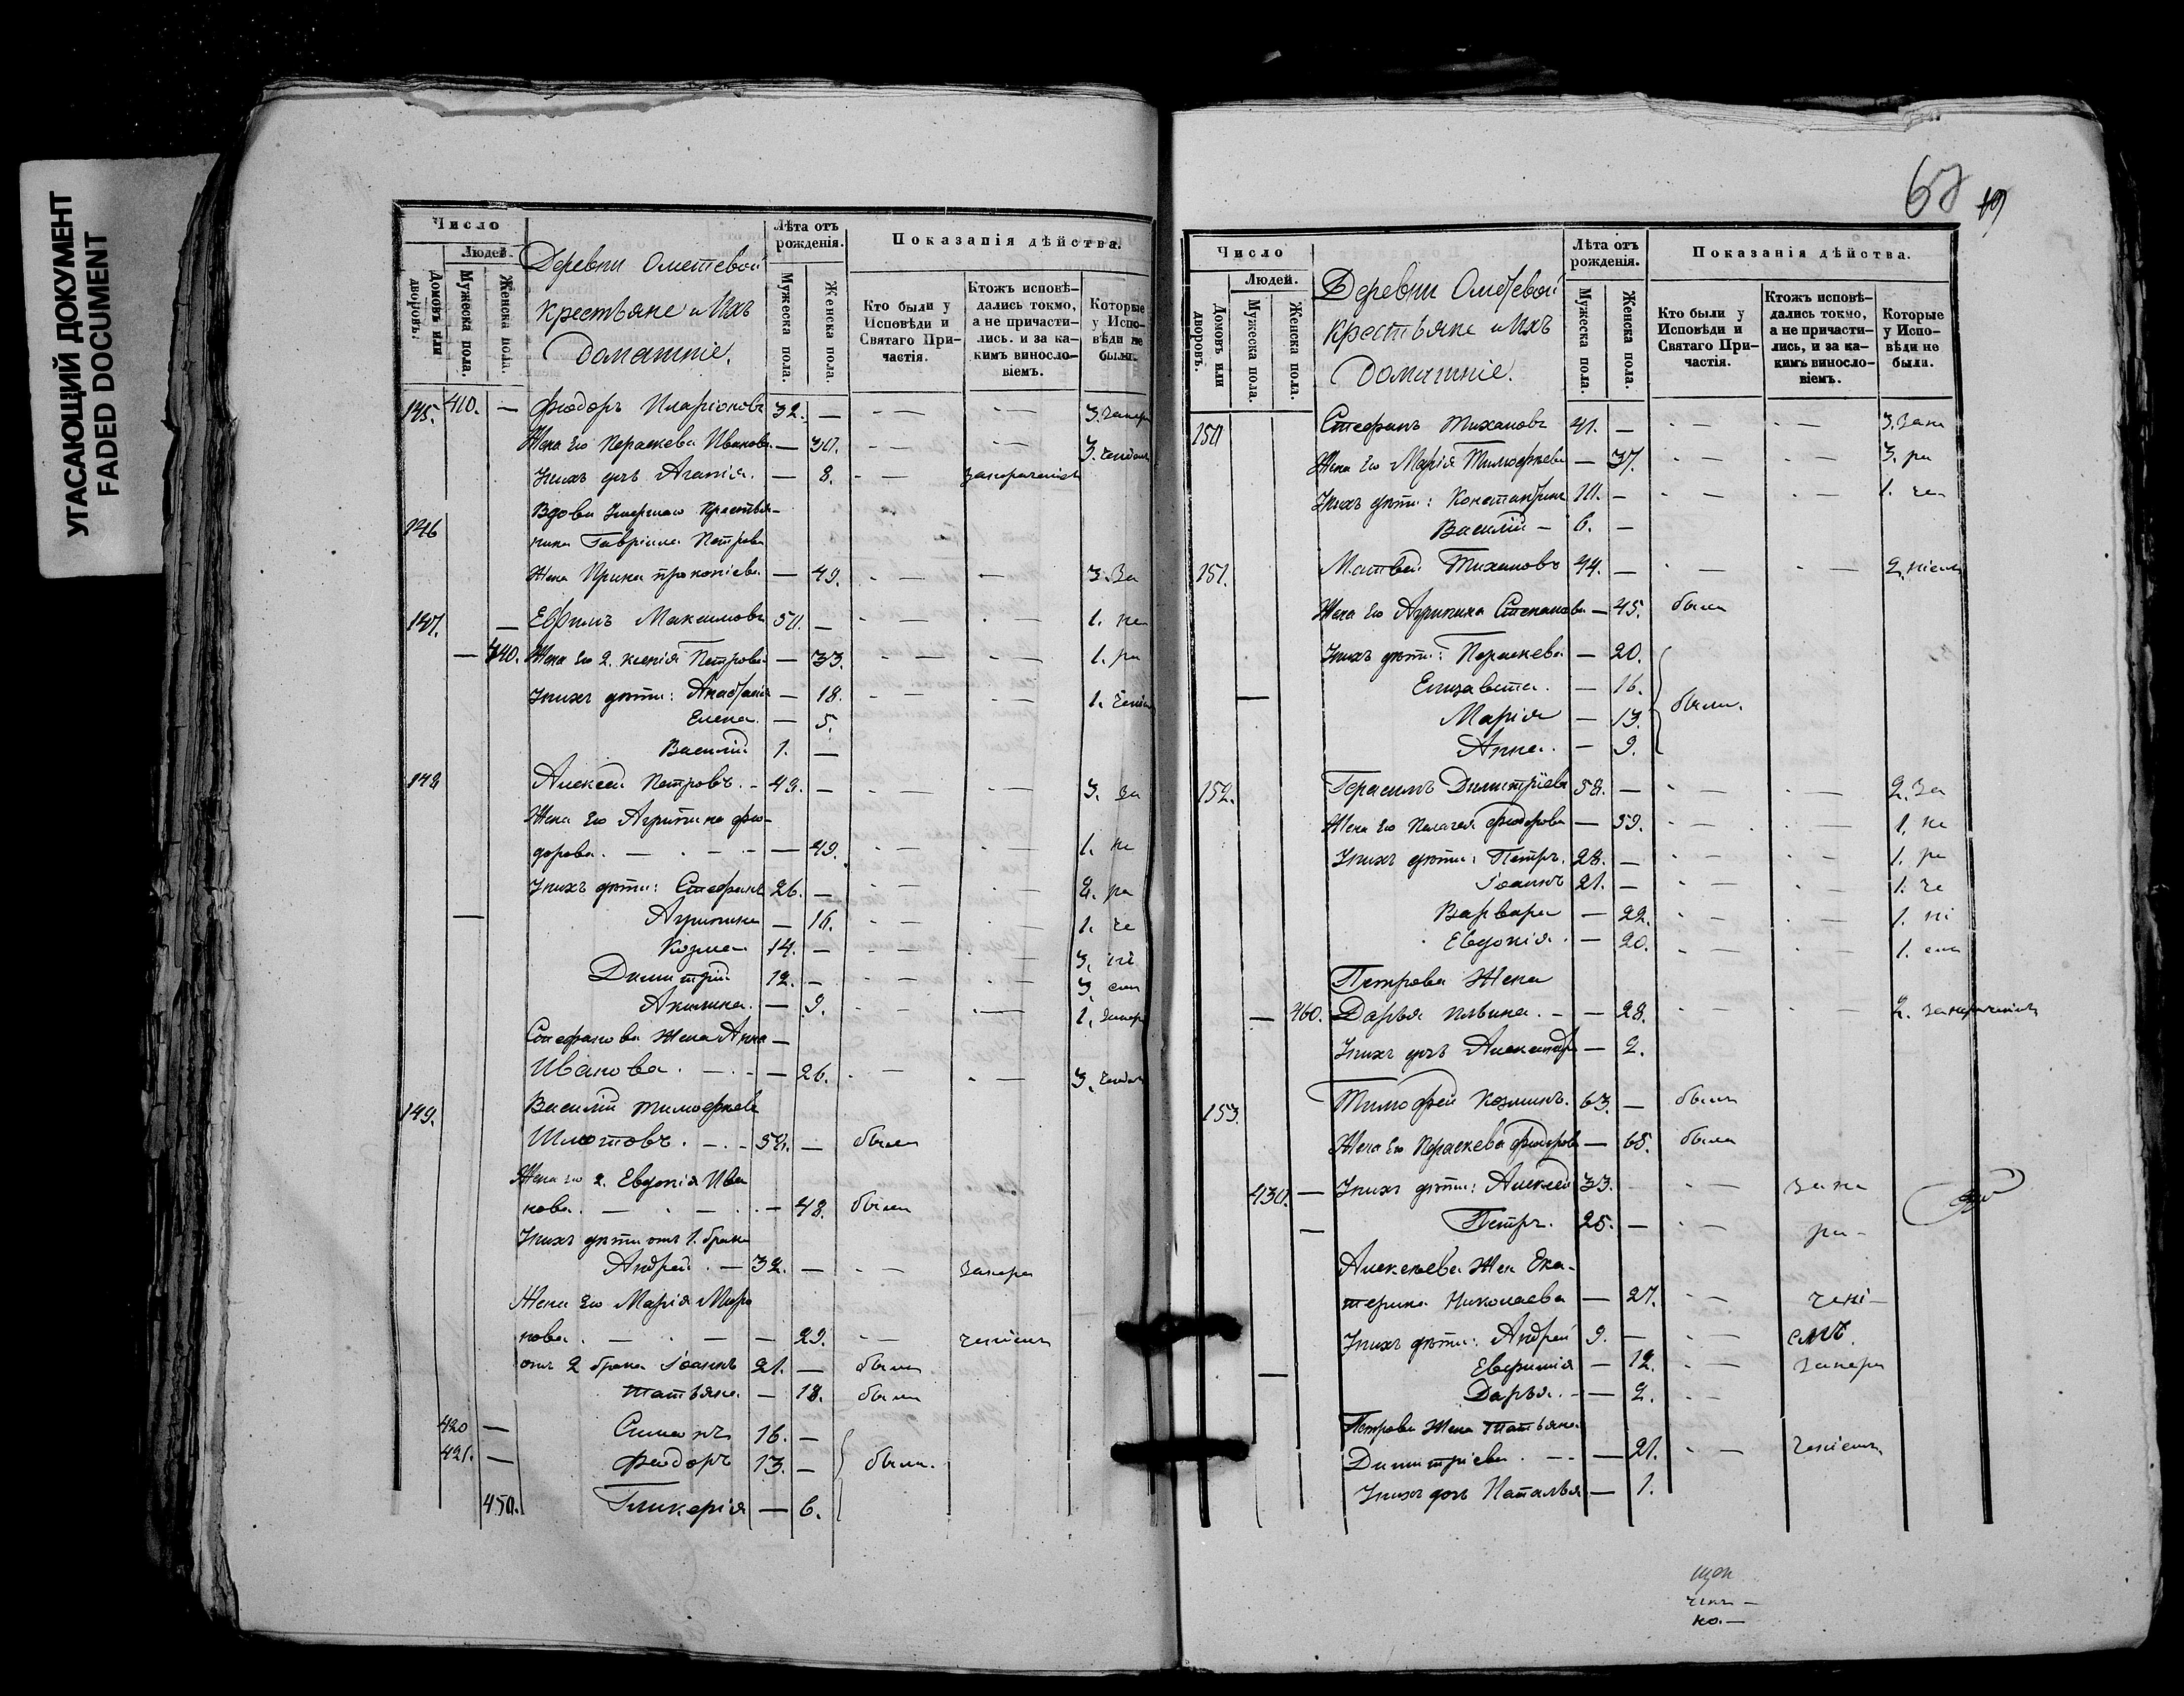 УГАСАЮЩИЙ ДОКУМЕНТ
FADED DOCUMENT
Число
Людей.
Домовъ или дворовъ.
Мужеска пола.
Женска пола.
Деревни Ометевой
крестьяне и ихъ
домашніе.
Лѣта отъ рожденія.
Мужеска пола.
Женска пола.
Показанія дѣйства.
Кто были у Исповѣди и Святаго Причастія.
Ктожъ исповѣдались токмо, а не причастились. и за какимъ винословіемъ.
Которые у Исповѣди не были.
145. 410. — Феодоръ Иларіоновъ 32. — 3.
Жена его Параскева Иванова — 30. 3.
У нихъ дчь Агапія. — 8.
146 Вдова Умершаго Крестья-
нина Гавріила Петрова
Жена Ирина прокопіева — 49. 3. За
147. — Ефимъ Максимовъ 50. — 1. не
— 440. Жена его 2. ксенія Петрова — 33. 1. ра
У нихъ дѣти: Анастасія — 18. 1.
Елена — 5.
Василій 1. —
148 Алексей Петровъ. 49. — 3. за
Жена его Агрипина фео-
дорова. — 49. 1. не
У нихъ дѣти: Стефанъ 26. — 2. ра
— Агрипина — 16. 1. че
Козма 14. — 3. ні
Димитрій 12. — 3. ем
Акилина. — 9. 1.
Стефанова Жена Анна —
Иванова. — 26. 3.
149. Василій тимофеевъ
Шмотовъ. 58. — былъ
Жена его 2. Евдокія Ива
нова. — 48. была
У нихъ дѣти отъ 1. брака
Андрей. — 32. —
Жена его Марія Миро
нова. — 29.
отъ 2 брака Іоаннъ 21. — былъ
татьяна — 18. была
420 — Симонъ 16. —
421. — феодоръ 13. — были.
450. Гликерія — 6.
67
Число
Людей.
Домовъ или дворовъ.
Мужеска пола.
Женска пола.
Деревни Ометевой
крестьяне и ихъ
домашніе.
Лѣта отъ рожденія.
Мужеска пола.
Женска пола.
Показанія дѣйства.
Кто были у Исповѣди и Святаго Причастія.
Ктожъ исповѣдались токмо, а не причастились, и за какимъ винословіемъ.
Которые у Исповѣди не была.
150 Стефанъ Тихановъ 41. — 3. Зане
Жена его Марія Тимофеева — 37. 3. ра
У нихъ дѣти: Константинъ 10. — 1. че
Василій — 6. —
151. Матвей Тихановъ 44. — 2. ніемъ
Жена его Агрипина Степанова — 45. была
У нихъ дѣти: Параскева — 20.
— Елизавета. — 16. были.
Марія — 13.
Анна. — 9.
152. Герасимъ Димитріевъ 58. — 2. За
Жена его Палагея Феодорова — 59. 1. не
У нихъ дѣти: Петръ. 28. — 1. ра
Іоаннъ 21. — 1. че
Варвара — 22. 1. ні
Евдокія. — 20. 1. емъ
Петрова Жена
— 460. Дарья Ильина. — 28. 2. занераченіемъ
У нихъ дчь Александра — 2.
153. Тимофей Козминъ. 63. — былъ
Жена его Параскева Феодорова — 65. была
430. — У нихъ дѣти: Алексей 33. зане
— Петръ. 25. — ра-
Алексеева Жена Ека-
терина Николаева — 27. чені-
У нихъ дѣти: Андрей 9. — емъ.
— Евфимія — 12. занера
Дарья. — 2.
Петрова Жена татьяна
Димитріева. — 21. ченіемъ
У нихъ дочь Наталья — 1.
но. —